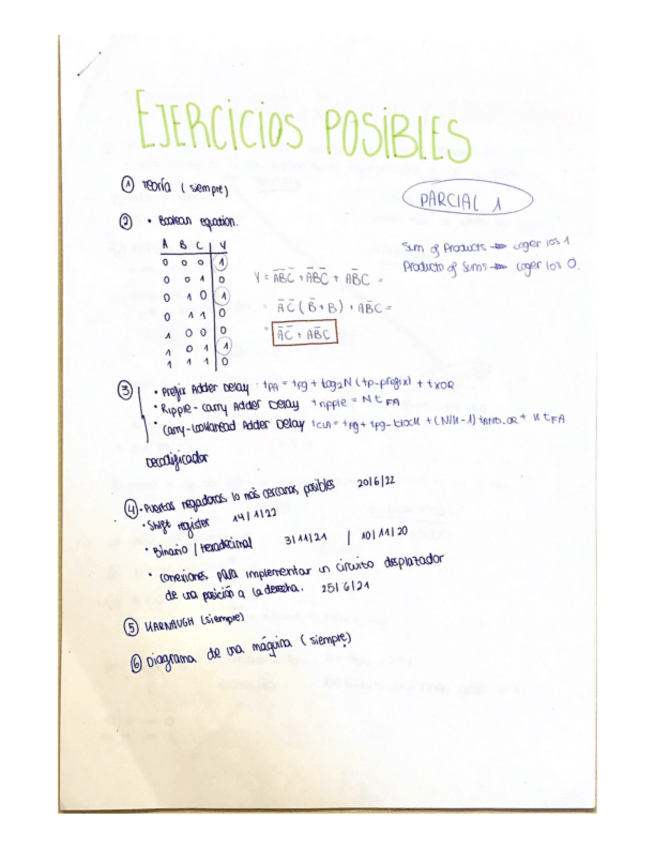 EJERCICIOS POSIBLES
① Teoría (siempre)
PARCIAL 1
② • Boolean equation.
A B C | Y
0 0 0 | 1
0 0 1 0
0 1 0 | 1
0 1 1 0
1 0 0 0
1 0 1 1
1 1 1 0
Sum of Products → coger los 1
Producto of Sums → coger los 0.
Y = A̅B̅C̅ + A̅BC̅ + AB̅C =
= A̅C̅ (B̅+B) + AB̅C =
= A̅C̅ + AB̅C
③ • Prefix Adder Delay : tPA = tpg + log₂N (tp-prefix) + tXOR
• Ripple-carry Adder Delay tripple = N tFA
• Carry-lookahead Adder Delay tCLA = tpg + tpg-block + (N/K-1) tAND_OR + K tFA
Decodificador
④ • Puertas negadoras lo más cercanas posibles 20/6/22
• Shift register 14/1/22
• Binario / Hexadecimal 3/11/21 | 10/11/20
• conexiones para implementar un circuito desplazador
de una posición a la derecha. 25/6/21
⑤ KARNAUGH (siempre)
⑥ Diagrama de una máquina (siempre)